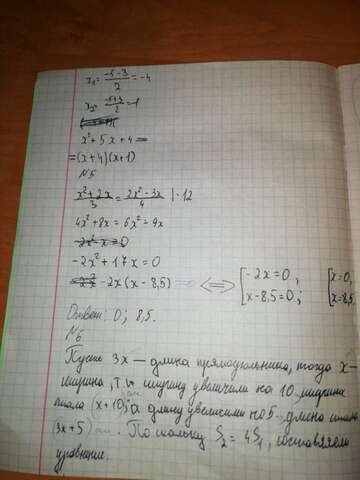 x₁ = (-5-3)/2 = -4
x₂ = (-5+3)/2 = -1
x² + 5x + 4 =
= (x+4)(x+1)
N5
(x²+2x)/3 = (2x²-3x)/4 | · 12
4x² + 8x = 6x² - 9x
-2x² + 17x = 0
-2x(x-8,5) = 0 <=> [-2x=0; [x=0;
[x-8,5=0; [x=8,5
Ответ: 0; 8,5.
N6
Пусть 3x — длина прямоугольника, тогда x —
ширина, т.к ширину увеличили на 10, ширина
стала (x+10)см, а длину увеличили на 5, длина стала
(3x+5) см. Поскольку S₂ = 4S₁, составляем
уравнение.